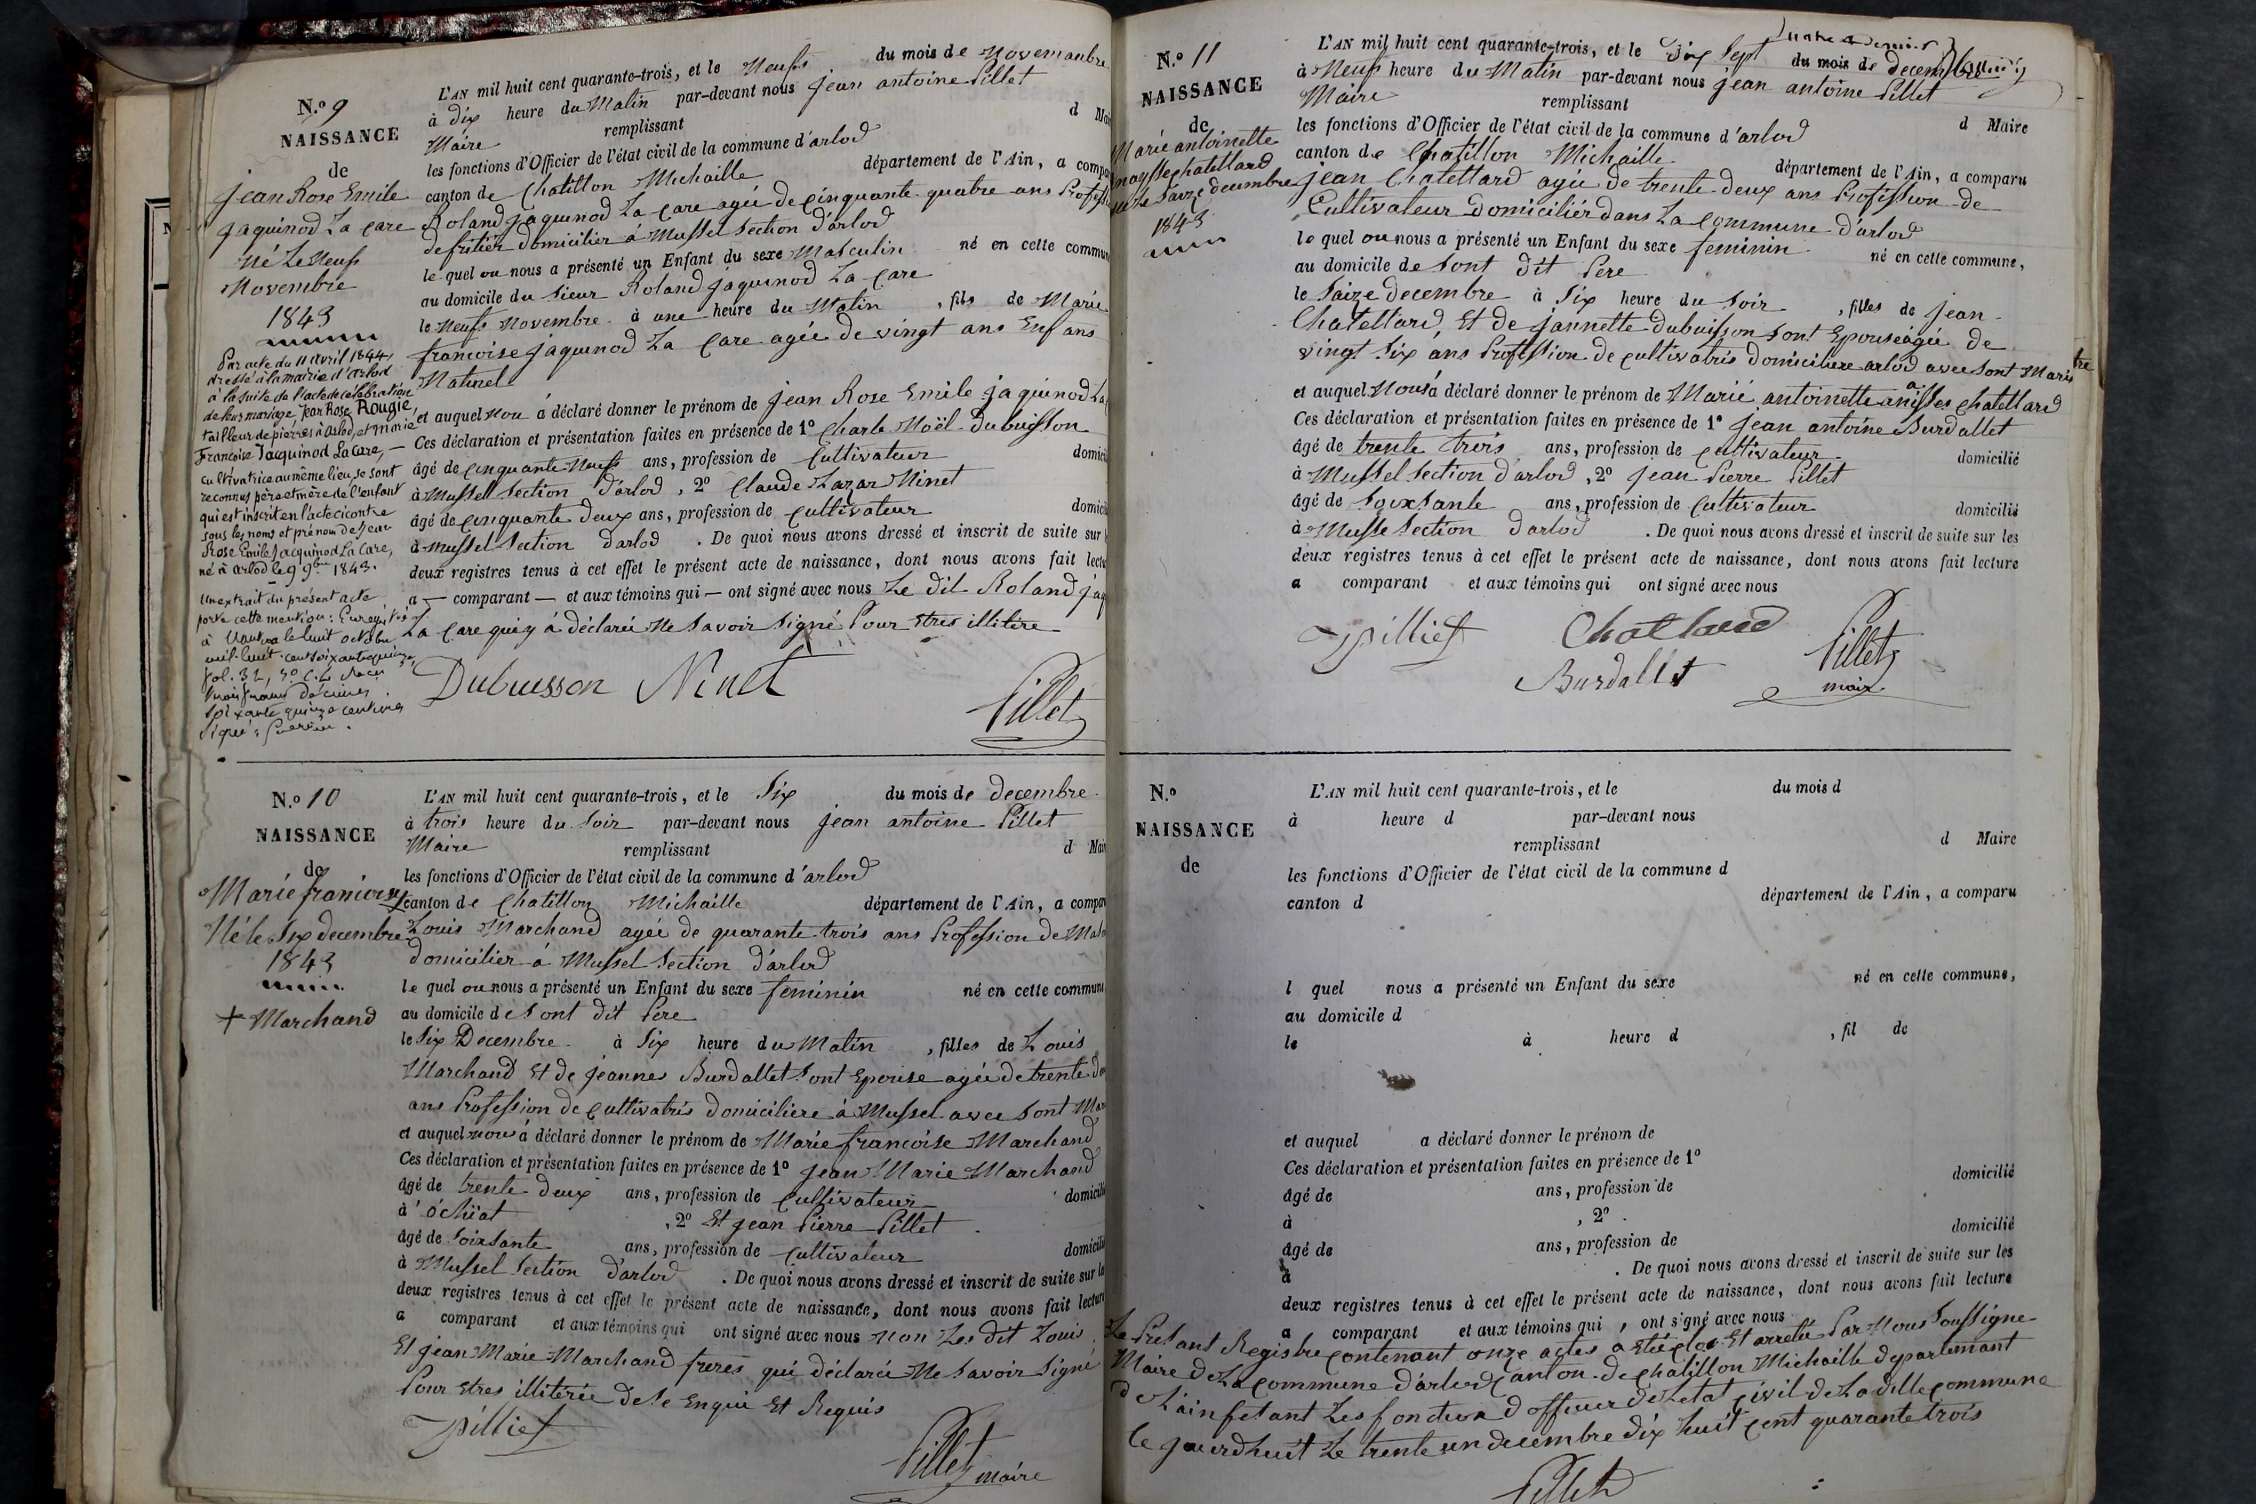 N.º 9
NAISSANCE
de
jean Rose Emile
jaquinod La care
Né Le Neuf
Novembre
1843
Par acte du 11 avril 1844,
dressé à la mairie d'Arlod
à la suite de l'acte de célébration
de leur mariage, Jean Rose Rougie,
tailleur de pierres à Arlod, et Marie
Françoise Jacquinod La Care, —
cultivatrice au même lieu, se sont
reconnus père et mère de l'enfant
qui est inscrit en l'acte ci contre
sous les noms et prénom de Jean
Rose Emile Jacquinod La Care,
né à Arlod le 9 9bre 1843.
Un extrait du présent acte
porte cette mention : Enregistré
à le huit octobre
mil huit cent soixante quinze,
fol. 32, Rº C. 4 Reçu
trois francs décimes
soixante quinze centimes
signé :
L'AN mil huit cent quarante-trois, et le Neufs du mois de Novemanbre
à dix heure du Matin par-devant nous jean antoine Pillet
Maire remplissant d Mai
les fonctions d'Officier de l'état civil de la commune d'arlod
canton de Chatillon Michaille département de l'Ain, a compa
Roland jaquinod La care agée de cinquante quatre ans Profess
de fritier domicilier á Mussel Section d'arlod
le quel ou nous a présenté un Enfant du sexe Masculin né en cette commun
au domicile du Sieur Roland jaquinod La care
le Neufs Novembre à une heure du Matin , fils de Marie
francoise jaquinod La Care agée de vingt ans Enfans
Naturel
et auquel Nou á déclaré donner le prénom de jean Rose Emile jaquinod La
Ces déclaration et présentation faites en présence de 1º Charle Noël Dubuisson
âgé de cinquante Neufs ans, profession de Cultivateur domicil
à Mussel Section d'arlod , 2º Claude Lazar Ninet
âgé de cinquante deux ans, profession de cultivateur domicil
à mussel Section d'arlod . De quoi nous avons dressé et inscrit de suite sur l
deux registres tenus à cet effet le présent acte de naissance, dont nous avons fait lectu
a — comparant — et aux témoins qui — ont signé avec nous Le dit Roland jaq
La Care quiy á déclarée Ne Savoir Signé Pour Etres illitère
Dubuisson Ninet
Pillet
N.º 10
NAISSANCE
de
Marie francoise
Né le Six decembre
1843
+ Marchand
L'AN mil huit cent quarante-trois, et le Six du mois de decembre
à trois heure du Soir par-devant nous jean antoine Pillet
Maire remplissant d Mair
les fonctions d'Officier de l'état civil de la commune d'arlod
canton de Chatillon Michaille département de l'Ain, a compar
Louis Marchand agée de quarante trois ans Profession de
domicilier á Mussel Section d'arlod
le quel ou nous a présenté un Enfant du sexe feminin né en cette commune
au domicile de Sont dit Père
le Six Decembre à Six heure du Matin , filles de Louis
Marchand Et de jeanne Burdallet Sont Epouse agée de trente
ans Profession de Cultivatris domiciliere á Mussel avec Sont
et auquel nous á déclaré donner le prénom de Marie francoise Marchand
Ces déclaration et présentation faites en présence de 1º jean Marie Marchand
âgé de trente deux ans, profession de Cultivateur domicilié
à óchiat , 2º Et jean Pierre Pillet
âgé de Soixsante ans, profession de Cultivateur domicilié
à Mussel Section d'arlod . De quoi nous avons dressé et inscrit de suite sur le
deux registres tenus à cet effet le présent acte de naissance, dont nous avons fait lecture
a comparant et aux témoins qui ont signé avec nous non Les dit Louis
Et jean Marie Marchand freres qui déclarée Ne Savoir Signé
Pour Etres illiterée de Se Enquie Et Requis
Pilliet
Pillet maire
N.º 11
NAISSANCE
de
Marié antoinette
anaysse chatellard
née Le Saize decembre
1843
L'AN mil huit cent quarante-trois, et le Dix Sept du mois de decembre
à Neuf heure du Matin par-devant nous jean antoine Pillet
Maire remplissant d Maire
les fonctions d'Officier de l'état civil de la commune d'arlod
canton de Chatillon Michaille département de l'Ain, a comparu
jean Chatellard agée de trente deux ans Profession de
Cultivateur domiciliér dans La commune d'arlod
le quel ou nous a présenté un Enfant du sexe feminin né en cette commune,
au domicile de Sont dit Père
le Saize decembre à Six heure du Soir , filles de jean
Chatellard, Et de jannette dubuisson Sont Epouse agée de
vingt Six ans Profession de cultivatris domiciliere arlod avec Sont Maris
et auquel Nous á déclaré donner le prénom de Marié antoinette anaisses chatellard
Ces déclaration et présentation faites en présence de 1º jean antoine Burdallet
âgé de trente trois ans, profession de Cultivateur domicilié
à Mussel Section d'arlod , 2º jean Pierre Pillet
âgé de Soixsante ans, profession de Cultivateur domicilié
à Musse Section d'arlod . De quoi nous avons dressé et inscrit de suite sur les
deux registres tenus à cet effet le présent acte de naissance, dont nous avons fait lecture
a comparant et aux témoins qui ont signé avec nous
Pilliet Chatlard Pillet
Burdallet maire
N.º
NAISSANCE
de
L'AN mil huit cent quarante-trois, et le du mois d
à heure d par-devant nous
remplissant d Maire
les fonctions d'Officier de l'état civil de la commune d
canton d département de l'Ain, a comparu
l quel nous a présenté un Enfant du sexe né en cette commune,
au domicile d
le à heure d , fil de
et auquel a déclaré donner le prénom de
Ces déclaration et présentation faites en présence de 1º
âgé de ans, profession de domicilié
à , 2º
âgé de ans, profession de domicilié
à . De quoi nous avons dressé et inscrit de suite sur les
deux registres tenus à cet effet le présent acte de naissance, dont nous avons fait lecture
a comparant et aux témoins qui , ont signé avec nous
Le Presant Registre contenant onze actes a Etée clos Et arretée Par Nous Soussigne
Maire de La commune d'arlod Canton de chatillon Michaille departemant
de Lain fesant Les fonction d officier de Letat civil de La ditte commune
Ce jourdhuit Le trente un decembre dix huit cent quarante trois
Pillet